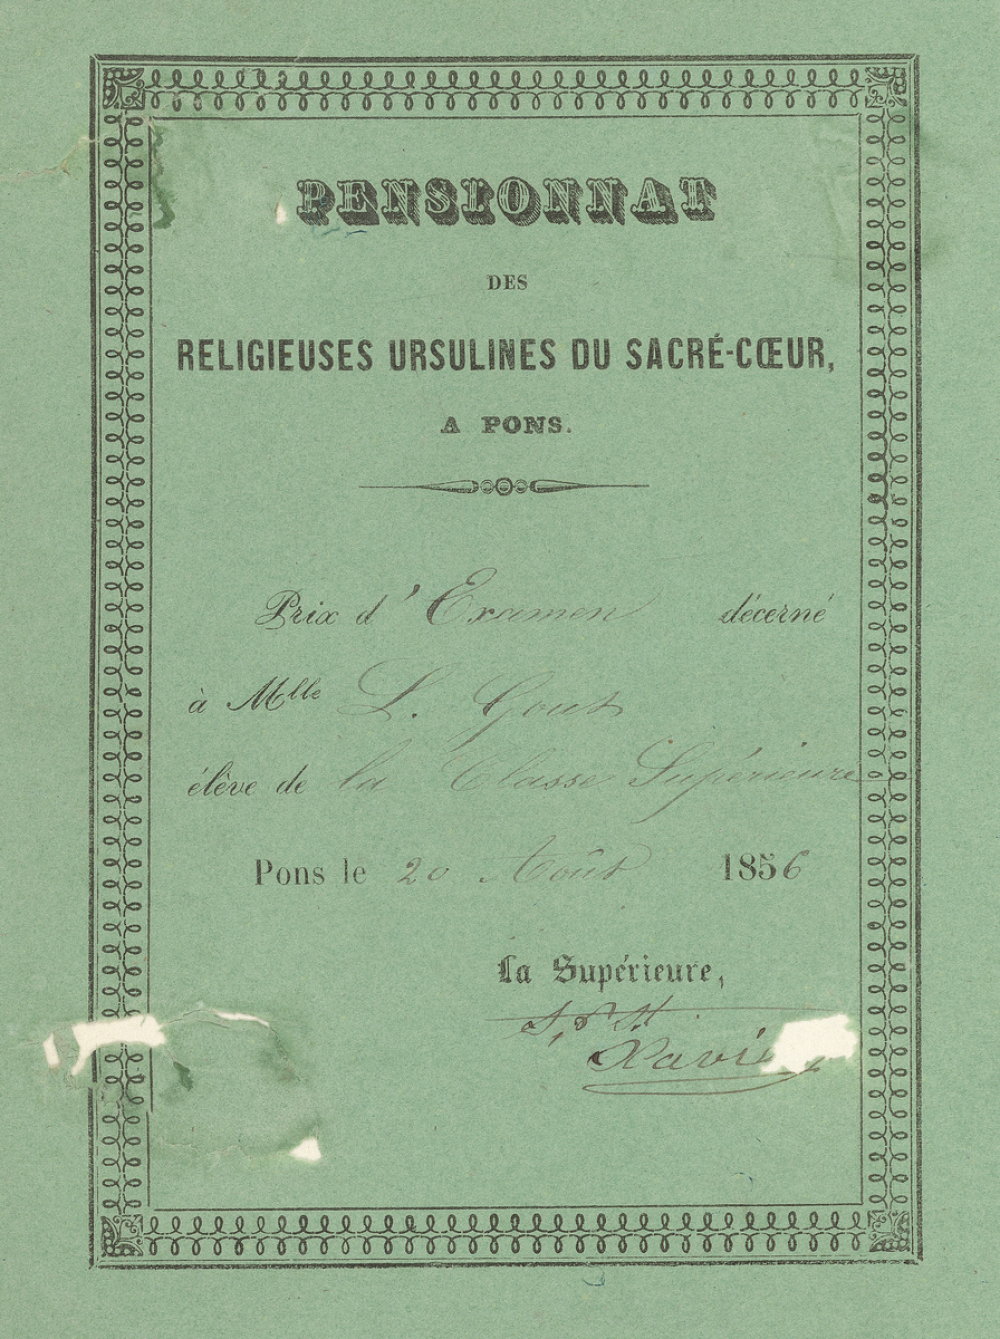 PENSIONNAT
DES
RELIGIEUSES URSULINES DU SACRÉ-CŒUR,
A PONS.
Prix d'Examen décerné
à Mlle L. Gout
élève de la Classe Supérieure
Pons le 20 Août 1856
La Supérieure,